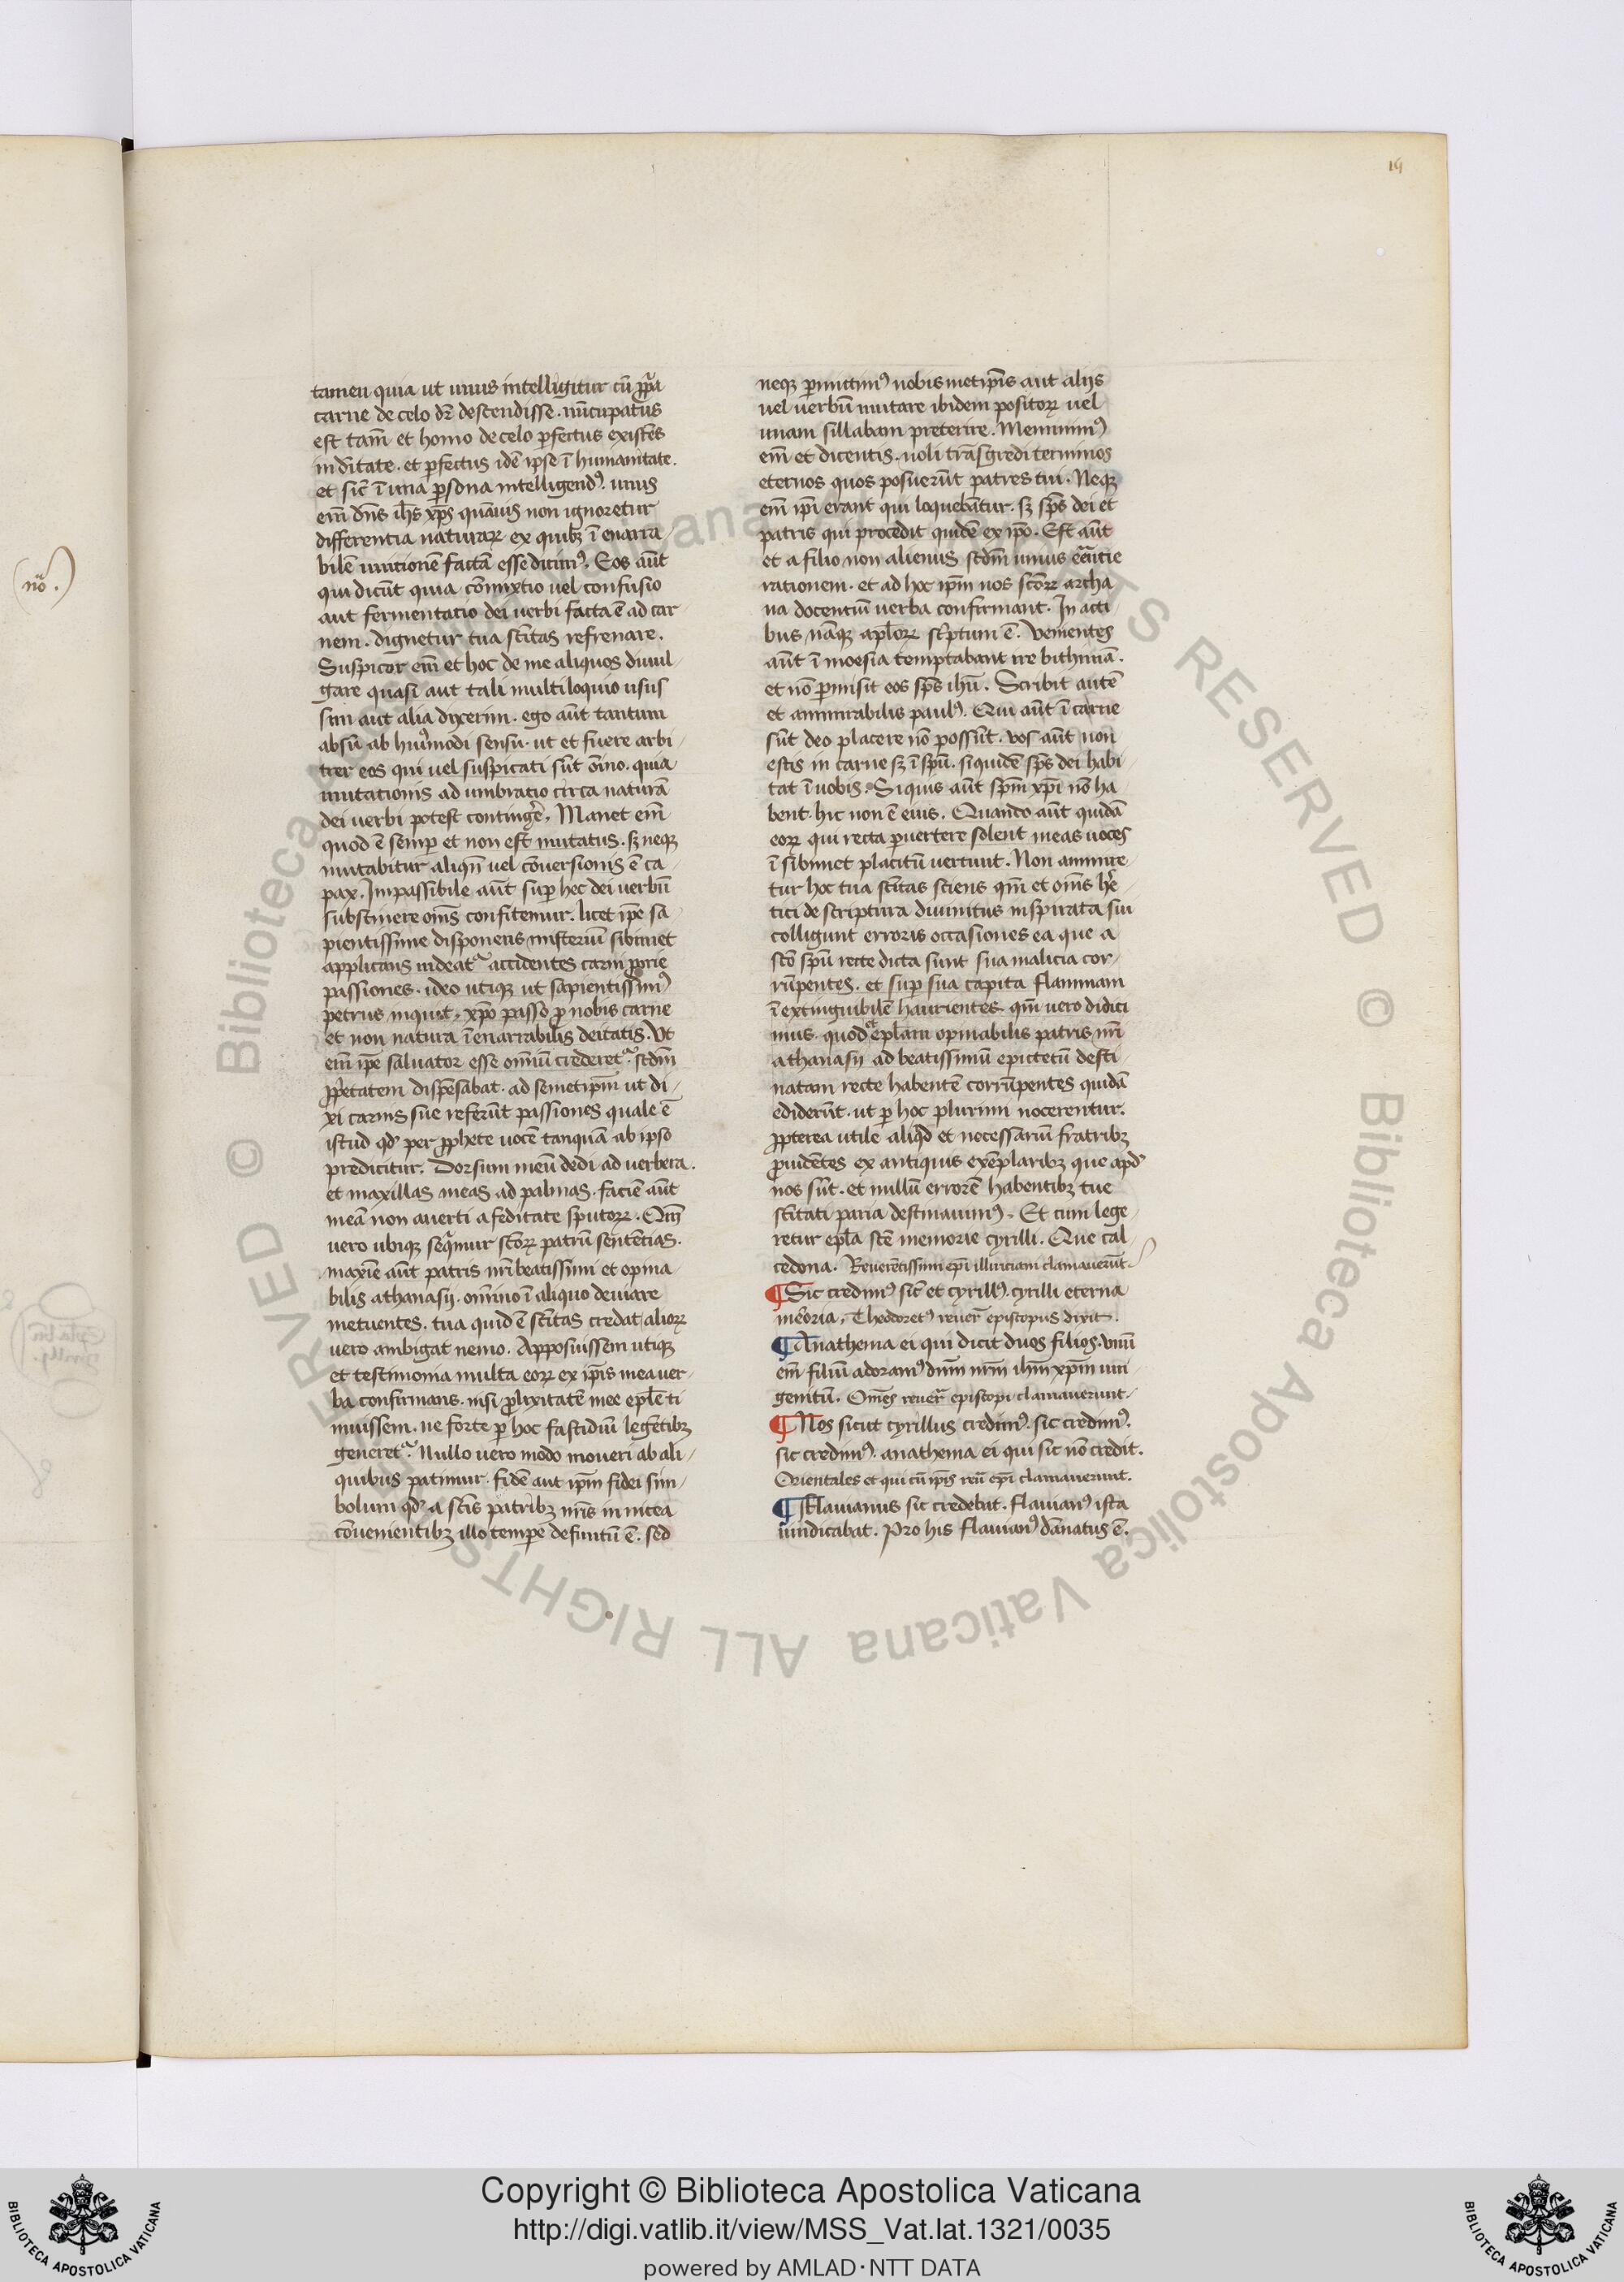 19
tamen quia ut unus intelligitur cũ ꝓp̃a
carne de celo dr̃ descendisse. nũcupatus
est tam̃ et homo de celo ꝑfectus existẽs
in ditate. et ꝑfectus idẽ ipse ĩ humanitate.
et sic̃ ĩ una ꝑsona intelligendꝰ. unus
em̃ dñs ih̃s xp̃s quãuis non ignoretur
differentia naturaꝝ ex quibꝫ ĩ enarra-
bilẽ unitionẽ factã esse dicimꝰ. Eos aũt
qui dicũt quia cõmixtio uel confusio
aut fermentatio dei uerbi facta ẽ ad car
nem. dignetur tua sc̃itas refrenare.
Suspicor em̃ et hoc de me aliquos diuul-
gare quasi aut tali multiloquio usus
sim aut alia dixerim. ego aũt tantum
absũ ab huiꝰmodi sensu. ut et fuere arbi-
trer eos qui uel suspicati sũt oĩno. quia
mutationis ad umbratio circa naturã
dei uerbi potest contingẽ. Manet em̃
quod ẽ semꝑ et non est mutatus. sꝫ neqꝫ
mutabitur aliqñ uel cõuersionis ẽ ca-
pax. Impassibile aũt suꝑ hec dei uerbũ
substinere om̃s confitemur. licet ip̃e sa-
pientissime disponens misteriũ sibimet
applicans uideat᷑ accidentes carni ꝓprie
passiones. ideo utiqꝫ ut sapientissimꝰ
petrus inquit. xp̃o passo ꝓ nobis carne
et non natura ĩ enarrabilis deitatis. Ut
em̃ ip̃e saluator esse omniũ crederet᷑. sc̃dm
ꝓp̃etatem dispẽsabat. ad semetip̃m ut di-
xi carnis sue referũt passiones quale ẽ
istud qđ per ꝓphete uocẽ tanquã ab ipso
predicitur. Dorsum meũ dedi ad uerbera.
et maxillas meas ad palmas. faciẽ aũt
meã non auerti a feditate sputoꝝ. Qm̃
uero ubiqꝫ seq̃mur sc̃oꝝ patrũ sentẽtias.
maxiẽ aũt patris nr̃i beatissimi et opina
bilis athanasij. om̃ino ĩ aliquo deuiare
metuentes. tua quidẽ sc̃itas credat alioꝝ
uero ambigat nemo. Apposuissem utiqꝫ
et testimonia multa eoꝝ ex ip̃is mea uer-
ba confirmans. nisi ꝓlixitatẽ mee ep̃le ti
muissem. ne forte ꝑ hoc fastidiũ legẽtibꝫ
generet᷑. Nullo uero modo moueri ab ali-
quibus patimur. fidẽ aut ip̃m fidei sim-
bolum qđ a sc̃is patribꝫ nr̃is in nicea
cõuenientibꝫ illo tempe definitũ ẽ. sed
neqꝫ ꝑmittimꝰ nobis metip̃is aut alijs
uel uerbũ mutare ibidem positoꝝ uel
unam sillabam preterire. Meminimꝰ
em̃ et dicentis. noli trãsgredi terminos
eternos quos posuerũt patres tui. Neqꝫ
em̃ ip̃i erant qui loquebãtur. sꝫ sp̃s dei et
patris qui procedit quidẽ ex ip̃o. Est aũt
et a filio non alienus sc̃dm unius eẽntie
rationem. et ad hoc ip̃m nos sc̃oꝝ archa
na docentiũ uerba confirmant. In acti
bus nãqꝫ apl̃oꝝ sc̃ptum ẽ. Venientes
aũt ĩ moesia temptabant ire bithiniã.
et nõ ꝑmisit eos sp̃s ihũ. Scribit autẽ
et amirabilis paulꝰ. Qui aũt ĩ carne
sũt deo placere nõ possũt. uos aũt non
estis in carne sꝫ ĩ sp̃u. siquidẽ sp̃s dei habi-
tat ĩ uobis. Siquis aũt sp̃m xp̃i nõ ha
bent. hic non ẽ eius. Quando aũt quidã
eoꝝ qui recta ꝑuertere solent meas uoces
ĩ sibimet placitũ uertunt. Non ammire-
tur hoc tua sc̃itas sciens qm̃ et om̃s hẽ-
tici de scriptura diuinitus inspirata sui
colligunt erroris occasiones ea que a
sc̃o sp̃u recte dicta sunt sua malicia cor-
rũpentes. et suꝑ sua capita flammam
ĩ extinguibilẽ haurientes. qm̃ uero didici
mus. quod et̃ epl̃am opinabilis patris nr̃i
athanasij ad beatissimũ epictetũ desti-
natam recte habentẽ corrũpentes quidã
ediderũt. ut ꝑ hoc plurimi nocerentur.
ꝓpterea utile aliq̃d et necessariũ fratribꝫ
ꝓuidẽtes ex antiquis exẽplaribꝫ que apđ
nos sũt. et nullũ errorẽ habentibꝫ tue
sc̃itati paria destinauimꝰ. Et cum lege
retur epl̃a sc̃e memorie cyrilli. Que cal-
cedona. Reuerẽtissimi ep̃i illiriciani clamauerũt.
¶Sic credimꝰ sic̃ et cyrillꝰ. cyrilli eterna
mẽoria. Theodoretꝰ reuer̃ episcopus dixit.
¶Anathema ei qui dicit duos filios. vnũ
em̃ filiũ adoramꝰ dnm̃ nr̃m ihm̃ xp̃m uni
genitũ. Om̃es reuer̃ episcopi clamauerunt.
¶Nos sicut cyrillus credimꝰ. sic credimꝰ.
sic credimꝰ. anathema ei qui sic nõ credit.
Orientales et qui cũ ip̃is reũ ep̃i clamauerunt.
¶Flauianus sic credebat. flauianꝰ ista
uindicabat. Pro his flauianꝰ dãnatus ẽ.
Copyright © Biblioteca Apostolica Vaticana
http://digi.vatlib.it/view/MSS_Vat.lat.1321/0035
powered by AMLAD·NTT DATA
BIBLIOTECA APOSTOLICA VATICANA
BIBLIOTECA APOSTOLICA VATICANA
© Biblioteca Apostolica Vaticana ALL RIGHTS RESERVED